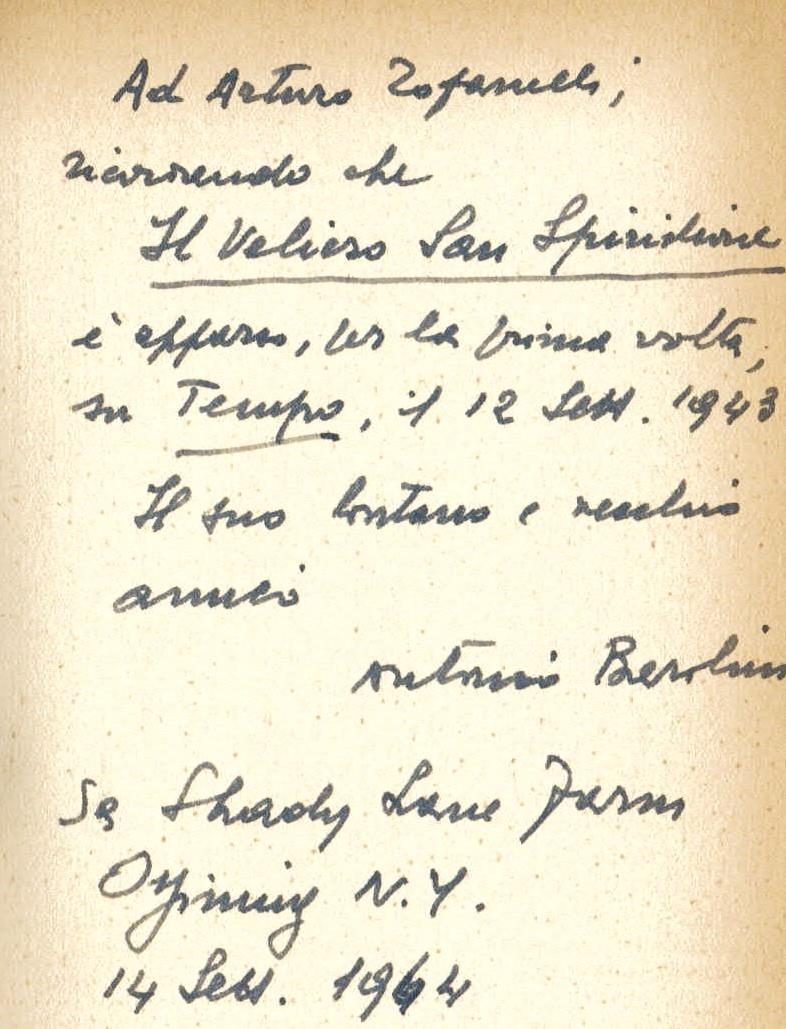 Ad Arturo Zofanelli;
ricorrendo che
Il Veliero San Spiridione
è apparso, per la prima volta,
su Tempo, il 12 Sett. 1943
Il suo lontano e vecchio
amico
Antonio Barolini
Shady Lane Farm
Ossining N.Y.
14 Sett. 1964